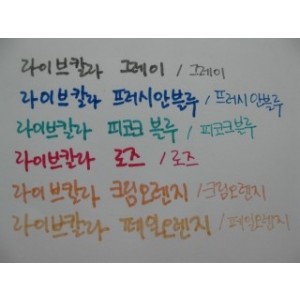 라이브칼라 그레이 / 그레이
라이브칼라 프러시안블루 / 프러시안블루
라이브칼라 피코크블루 / 피코크블루
라이브칼라 로즈 / 로즈
라이브칼라 크림오렌지 / 크림오렌지
라이브칼라 페일오렌지 / 페일오렌지